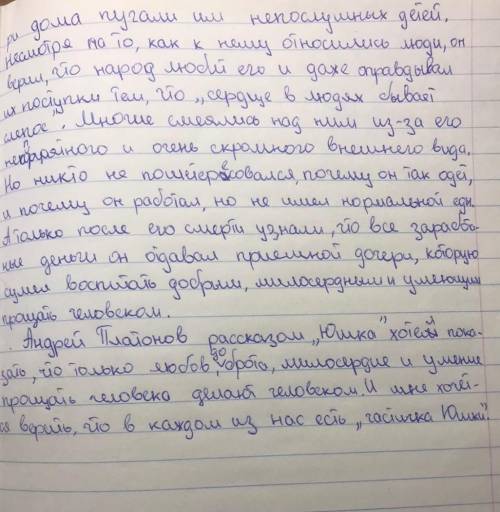 ри дома пугали им непослушных детей.
Несмотря на то, как к нему относились люди, он
верил, что народ любит его и даже оправдывал
их поступки тем, что „сердце в людях бывает
слепое". Многие смеялись над ним из-за его
неопрятного и очень скромного внешнего вида.
Но никто не поинтересовался, почему он так одет,
и почему он работал, но не имел нормальной еды.
А только после его смерти узнали, что все заработан-
ные деньги он отдавал приемной дочери, которую
сумел воспитать добрым, милосердным и умеющим
прощать человеком.
Андрей Платонов рассказом „Юшка" хотел пока-
зать, что только любов, доброта, милосердие и умение
прощать человека делают человеком. И мне хочет-
ся верить, что в каждом из нас есть „частичка Юшки".